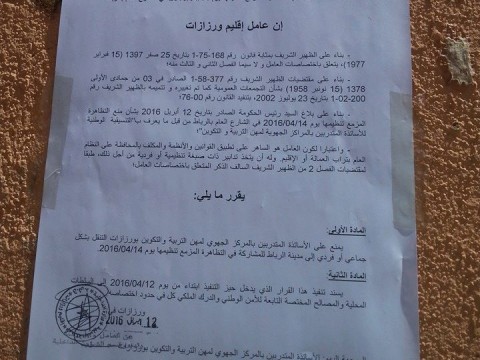 إن عامل إقليم ورزازات
- بناء على الظهير الشريف بمثابة قانون رقم 168-75-1 بتاريخ 25 صفر 1397 (15 فبراير
1977)، يتعلق باختصاصات العامل و لا سيما الفصل الثاني و الثالث منه؛
- بناء على مقتضيات الظهير الشريف رقم 377-58-1 الصادر في 03 من جمادى الأولى
1378 (15 نونبر 1958) بشأن التجمعات العمومية كما تم تغييره و تتميمه بالظهير الشريف رقم
200-02-1 بتاريخ 23 يوليوز 2002، بتنفيذ القانون رقم 00-76؛
- بناء على بلاغ السيد رئيس الحكومة الصادر بتاريخ 12 أبريل 2016 بشأن منع التظاهرة
المزمع تنظيمها يوم 2016/04/14 في الشارع العام بالرباط من قبل ما يعرف ب"التنسيقية الوطنية
للأساتذة المتدربين بالمراكز الجهوية لمهن التربية و التكوين"؛
- واعتبارا لكون العامل هو الساهر على تطبيق القوانين والأنظمة والمكلف بالمحافظة على النظام
العام بتراب العمالة أو الإقليم وله أن يتخذ تدابير ذات صبغة تنظيمية أو فردية من أجل ذلك، طبقا
لمقتضيات الفصل 2 من الظهير الشريف السالف الذكر المتعلق باختصاصات العامل؛
يقرر ما يلي:
المادة الأولى:
يمنع على الأساتذة المتدربين بالمركز الجهوي لمهن التربية والتكوين بورزازات التنقل بشكل
جماعي أو فردي إلى مدينة الرباط للمشاركة في التظاهرة المزمع تنظيمها يوم 2016/04/14.
المادة الثانية:
يسند تنفيذ هذا القرار الذي يدخل حيز التنفيذ ابتداء من يوم 2016/04/12 إلى السلطات
المحلية والمصالح المختصة التابعة للأمن الوطني والدرك الملكي كل في حدود اختصاصه
ورزازات في
12 2016
الأساتذة المتدربين بالمركز الجهوي لمهن التربية والتكوين بورزازات